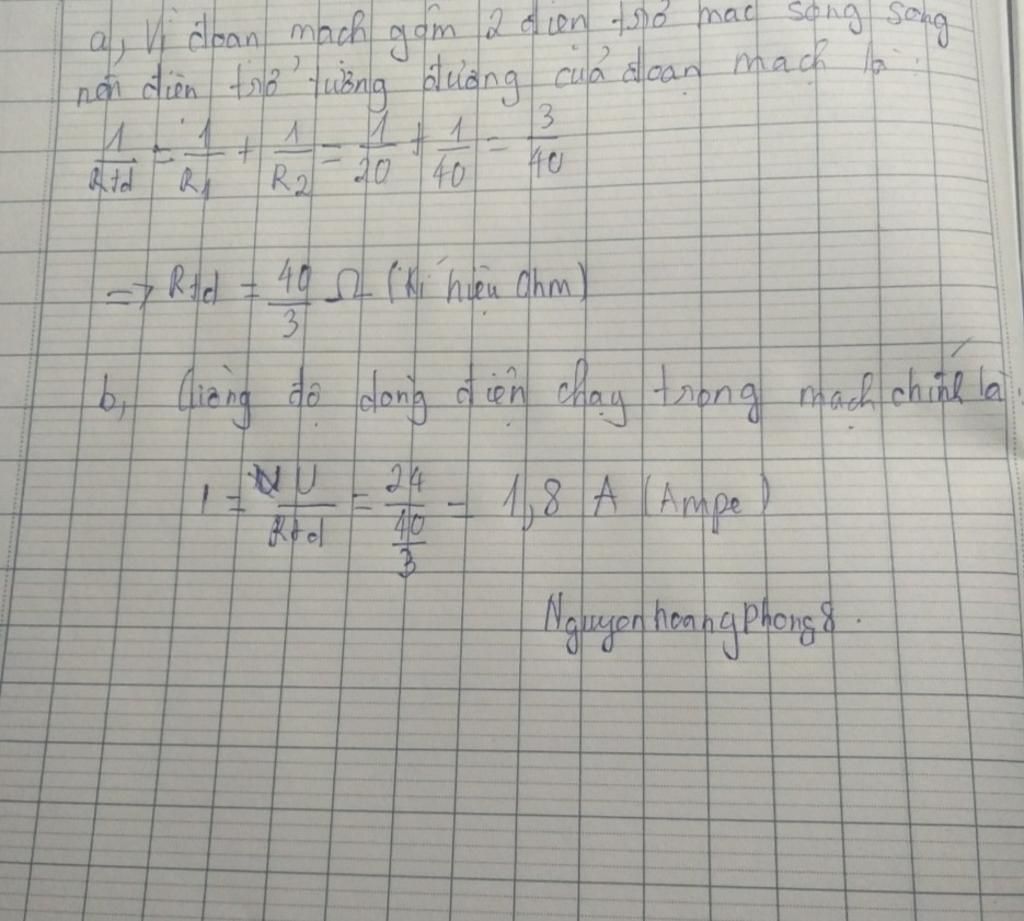 a, Vì đoạn mạch gồm 2 điện trở mắc song song
nên điện trở tương đương của đoạn mạch là:
1/Rtđ = 1/R1 + 1/R2 = 1/20 + 1/40 = 3/40
=> Rtđ = 40/3 Ω (Kí hiệu Ohm)
b, Cường độ dòng điện chạy trong mạch chính là
I = U/Rtđ = 24/(40/3) = 1,8 A (Ampe)
Nguyenhoangphong8.